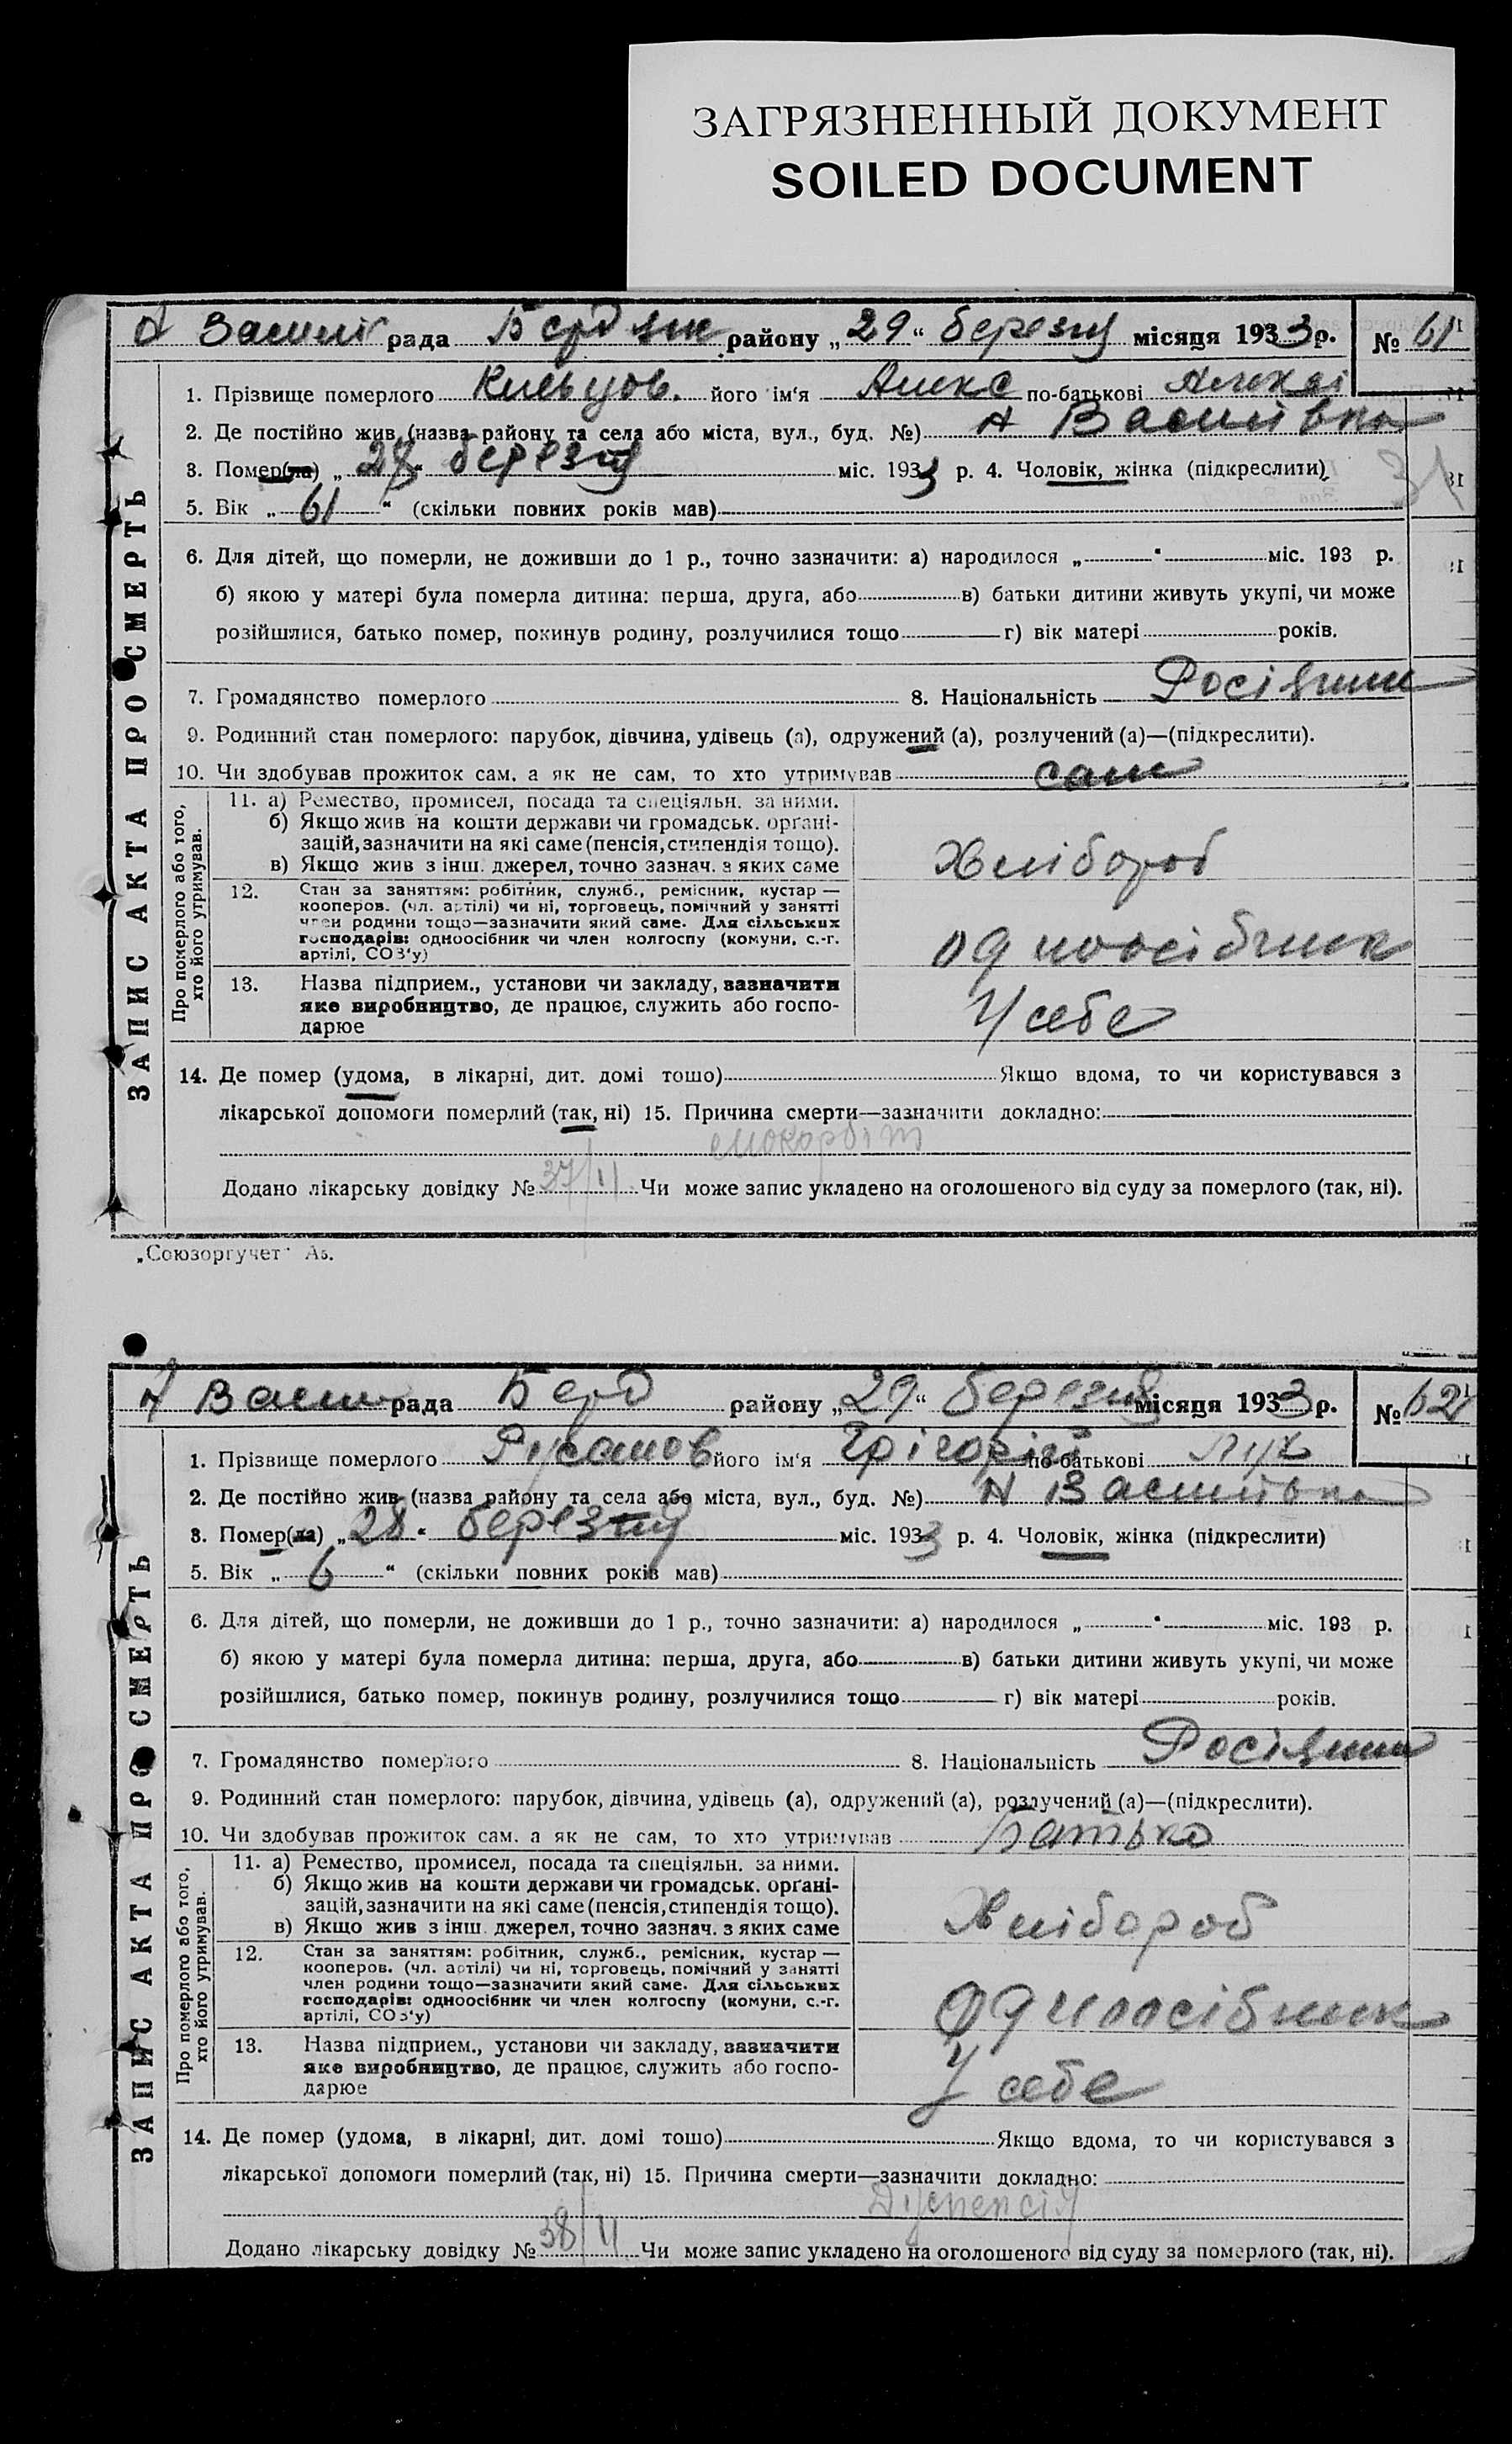 ЗАГРЯЗНЕННЫЙ ДОКУМЕНТ
SOILED DOCUMENT
рада район у „29“ березня місяця 1933 р. № 61
ЗАПИС АКТА ПРО СМЕРТЬ
1. Прізвище померлого його ім'я Алекс по-батькові
2. Де постійно жив (назва району та села або міста, вул., буд. №) А Василівка
3. Помер(ла) „27“ березня міс. 1933 р. 4. Чоловік, жінка (підкреслити)
31
5. Вік „61“ (скільки повних років мав)
6. Для дітей, що померли, не доживши до 1 р., точно зазначити: а) народилося „ “ міс. 193 р.
б) якою у матері була померла дитина: перша, друга, або в) батьки дитини живуть укупі, чи може
розійшлися, батько помер, покинув родину, розлучилися тощо г) вік матері років.
7. Громадянство померлого 8. Національність Росіянин
9. Родинний стан померлого: парубок, дівчина, удівець (а), одружений (а), розлучений (а)—(підкреслити).
10. Чи здобував прожиток сам, а як не сам, то хто утримував сам
Про померлого або того, хто його утримував.
11. а) Ремество, промисел, посада та спеціяльн. за ними.
б) Якщо жив на кошти держави чи громадськ. орґані-
зацій, зазначити на які саме (пенсія, стипендія тощо).
в) Якщо жив з інш. джерел, точно зазнач. з яких саме
Хлібороб
12. Стан за заняттям: робітник, служб., ремісник, кустар —
кооперов. (чл. артілі) чи ні, торговець, помічний у занятті
член родини тощо—зазначити який саме. Для сільських
господарів: одноосібник чи член колгоспу (комуни, с.-г.
артілі, СОЗ'у)
одноосібник
13. Назва підприєм., установи чи закладу, зазначити
яке виробництво, де працює, служить або госпо-
дарює
У себе
14. Де помер (удома, в лікарні, дит. домі тощо) Якщо вдома, то чи користувався з
лікарської допомоги померлий (так, ні) 15. Причина смерти—зазначити докладно:
Додано лікарську довідку № 37/11 Чи може запис укладено на оголошеного від суду за померлого (так, ні).
„Союзоргучет“ Аз.
А Васил рада Берд району „29“ березня місяця 1933 р. № 62
ЗАПИС АКТА ПРО СМЕРТЬ
1. Прізвище померлого Русанов його ім'я Грігорій по-батькові Лук
2. Де постійно жив (назва району та села або міста, вул., буд. №) А Василівка
3. Помер(ла) „28“ березня міс. 1933 р. 4. Чоловік, жінка (підкреслити)
5. Вік „6“ (скільки повних років мав)
6. Для дітей, що померли, не доживши до 1 р., точно зазначити: а) народилося „ “ міс. 193 р.
б) якою у матері була померла дитина: перша, друга, або в) батьки дитини живуть укупі, чи може
розійшлися, батько помер, покинув родину, розлучилися тощо г) вік матері років.
7. Громадянство померлого 8. Національність Росіянин
9. Родинний стан померлого: парубок, дівчина, удівець (а), одружений (а), розлучений (а)—(підкреслити).
10. Чи здобував прожиток сам, а як не сам, то хто утримував Батько
Про померлого або того, хто його утримував.
11. а) Ремество, промисел, посада та спеціяльн. за ними.
б) Якщо жив на кошти держави чи громадськ. орґані-
зацій, зазначити на які саме (пенсія, стипендія тощо).
в) Якщо жив з інш. джерел, точно зазнач. з яких саме
Хлібороб
12. Стан за заняттям: робітник, служб., ремісник, кустар —
кооперов. (чл. артілі) чи ні, торговець, помічний у занятті
член родини тощо—зазначити який саме. Для сільських
господарів: одноосібник чи член колгоспу (комуни, с.-г.
артілі, СОЗ'у)
Одноосібник
13. Назва підприєм., установи чи закладу, зазначити
яке виробництво, де працює, служить або госпо-
дарює
У себе
14. Де помер (удома, в лікарні, дит. домі тощо) Якщо вдома, то чи користувався з
лікарської допомоги померлий (так, ні) 15. Причина смерти—зазначити докладно:
Диспепсія
Додано лікарську довідку № 38/11 Чи може запис укладено на оголошеного від суду за померлого (так, ні).